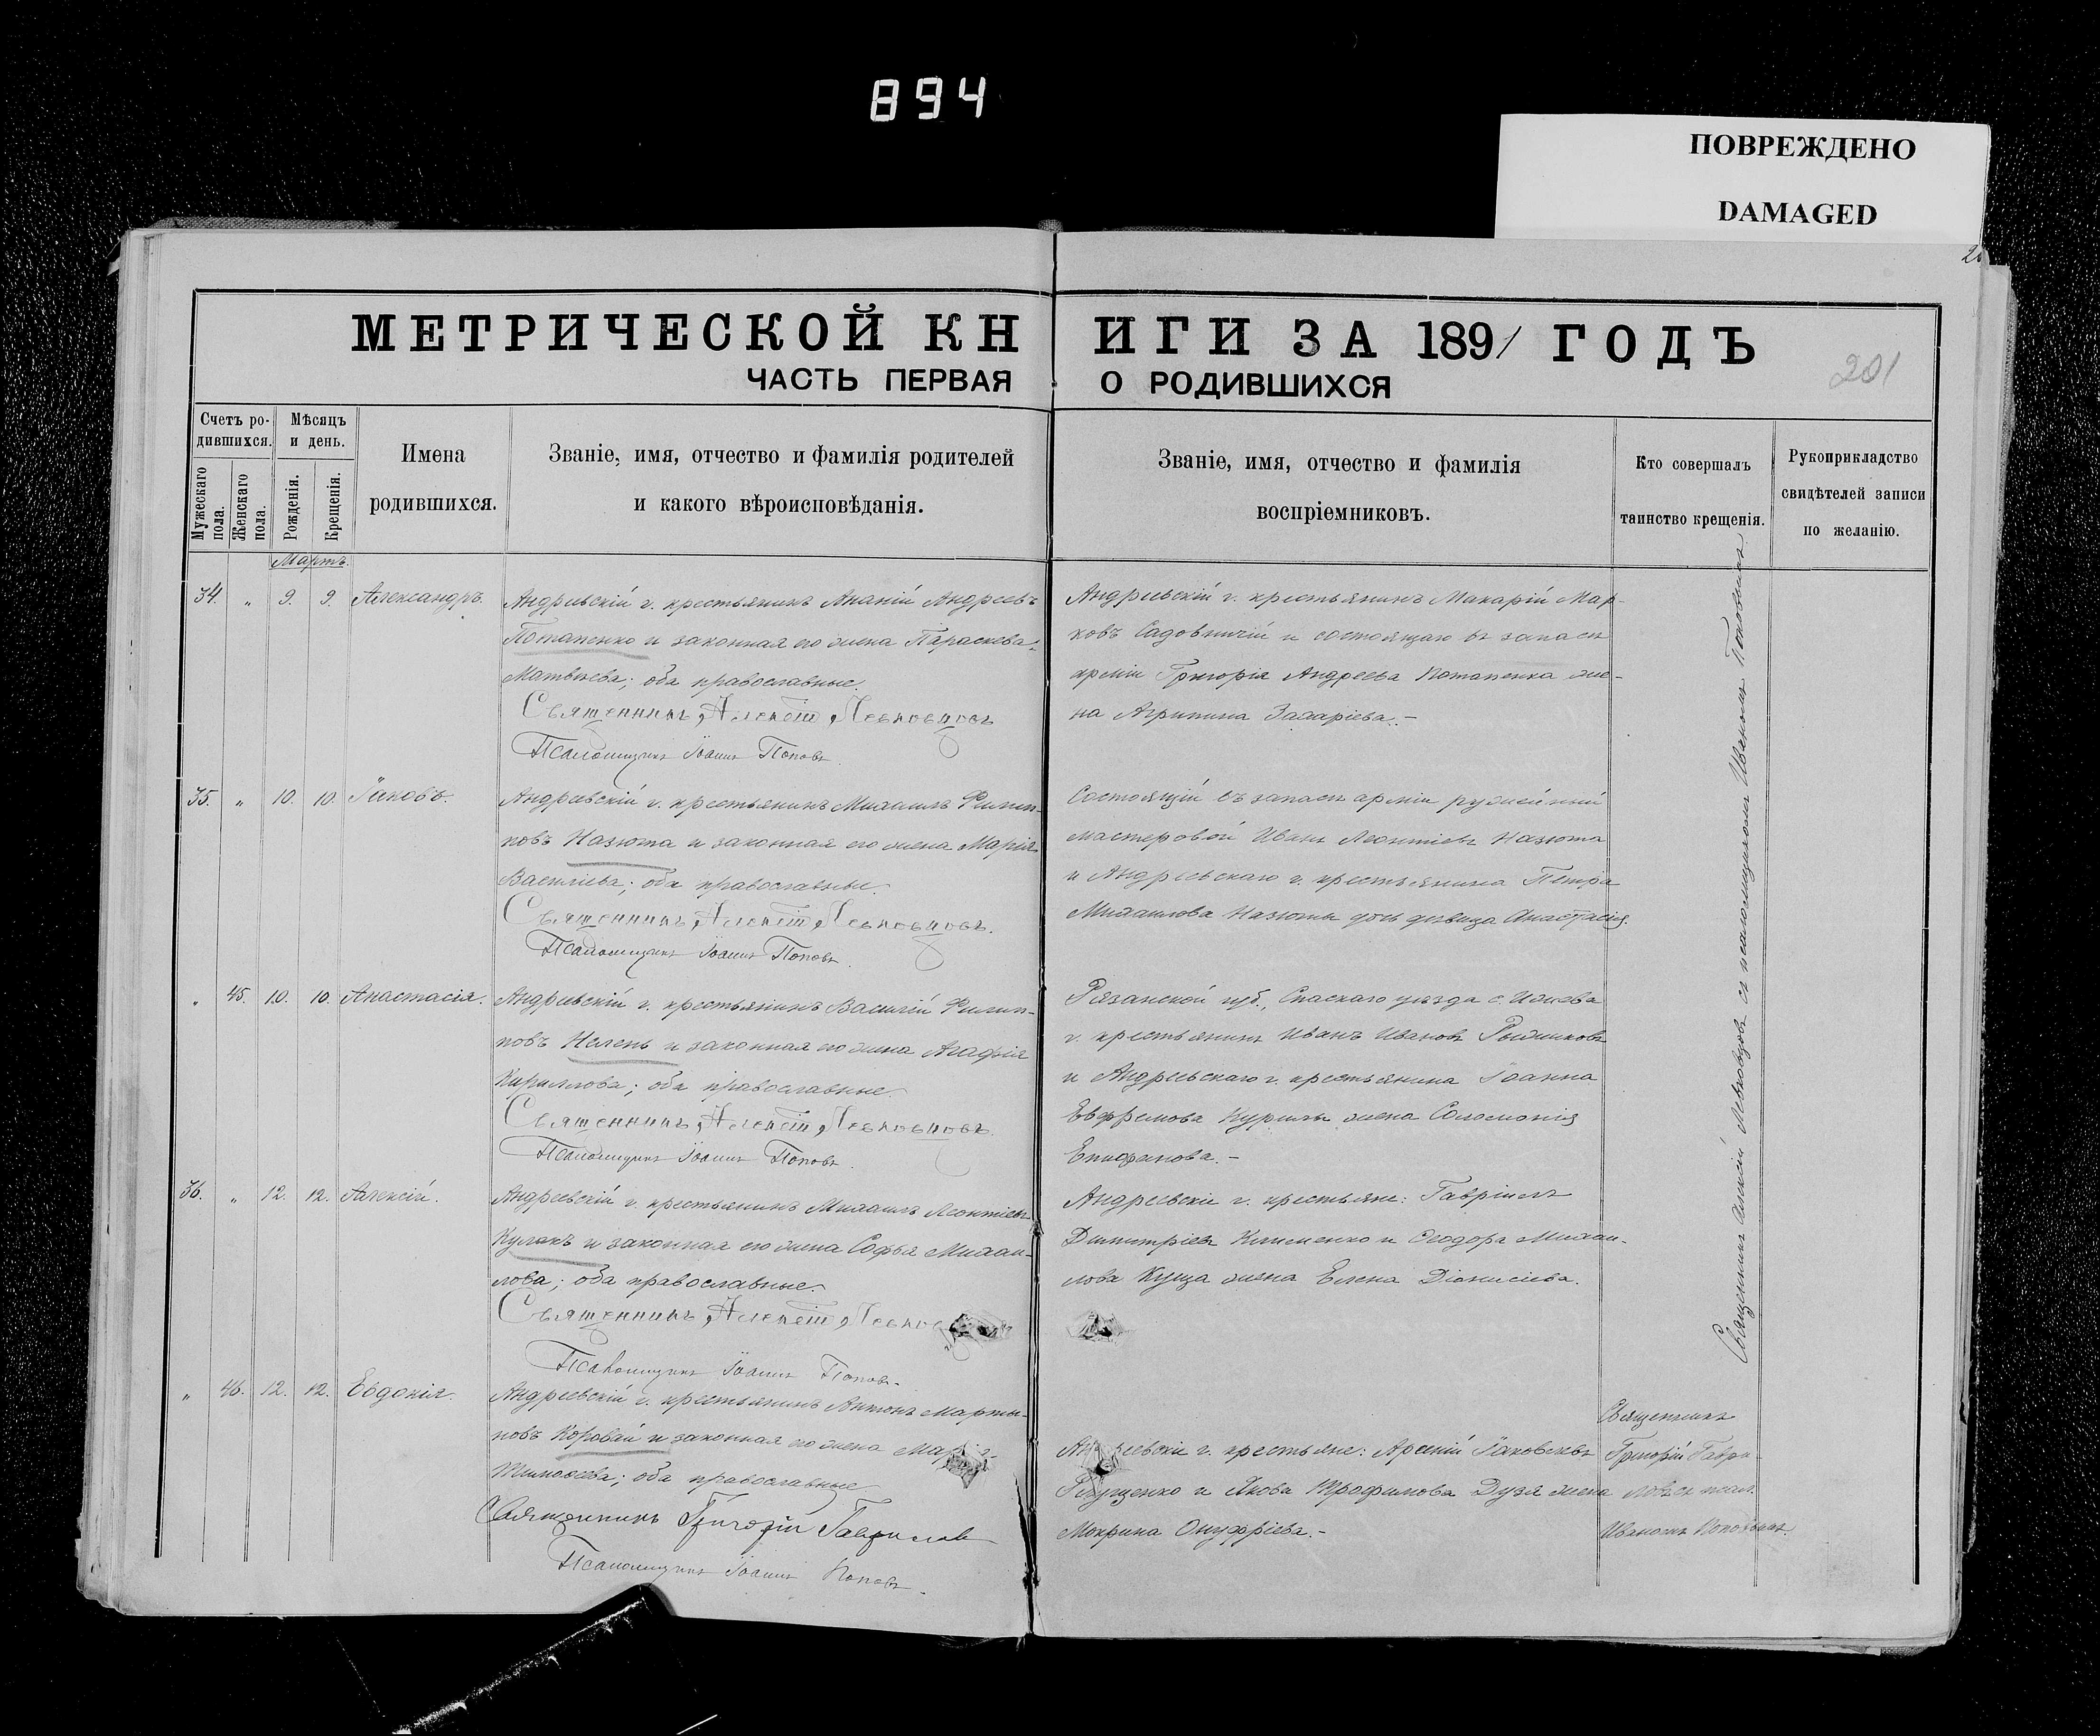 894
ПОВРЕЖДЕНО
DAMAGED
МЕТРИЧЕСКОЙ КНИГИ ЗА 1891 ГОДЪ
ЧАСТЬ ПЕРВАЯ О РОДИВШИХСЯ
201
Счетъ ро-
дившихся.
Мужескаго пола.
Женскаго пола.
Мѣсяцъ
и день.
Рожденія.
Крещенія.
Имена
родившихся.
Званіе, имя, отчество и фамилія родителей
и какого вѣроисповѣданія.
Званіе, имя, отчество и фамилія
воспріемниковъ.
Кто совершалъ
таинство крещенія.
Рукоприкладство
свидѣтелей записи
по желанію.
Мартъ.
34. " 9. 9. Александръ.
Андреевскій г. крестьянинъ Ананій Андреевъ
Потапенко и законная его жена Параскева
Матвѣева; оба православные.
Священникъ Алексій Левковцовъ
Псаломщикъ Іоаннъ Поповъ.
Андреевскій г. крестьянинъ Макарій Мар-
ковъ Садовничій и состоящаго въ запасѣ
арміи Григорія Андреева Потапенка же-
на Агрипина Захаріева.-
35. " 10. 10. Іаковъ.
Андреевскій г. крестьянинъ Михаилъ Филип-
повъ Назюта и законная его жена Марія
Васильева; оба православные.
Священникъ Алексій Левковцовъ.
Псаломщикъ Іоаннъ Поповъ.
Состоящій въ запасѣ арміи ружейный
мастеровой Иванъ Леонтіевъ Назюта
и Андреевскаго г. крестьянина Петра
Михаилова Назюты дочь дѣвица Анастасія.
" 45. 10. 10. Анастасія.
Андреевскій г. крестьянинъ Василій Филип-
повъ и законная его жена Агафія
Кириллова; оба православные.
Священникъ Алексій Левковцовъ.
Псаломщикъ Іоаннъ Поповъ.
Рязанской губ., Спаскаго уѣзда с. Ижева
г. крестьянинъ Иванъ Ивановъ
и Андреевскаго г. крестьянина Іоанна
Евфремова Курилы жена Соломонія
Епифанова.-
36. " 12. 12. Алексій.
Андреевскій г. крестьянинъ Михаилъ Леонтіевъ
Кулакъ и законная его жена Софья Михаи-
лова; оба православные.
Священникъ Алексій
Псаломщикъ Іоаннъ Поповъ.
Андреевскіе г. крестьяне: Гавріилъ
Димитріевъ Клименко и Ѳеодора Михаи-
лова Куща жена Елена Діонисіева.
Священникъ Алексій Левковцовъ съ псаломщикомъ Иваномъ Поповымъ
" 46. 12. 12. Евдокія.
Андреевскій г. крестьянинъ Антонъ Марты-
новъ Коровай и законная его жена
Тимоѳеева; оба православные
Священникъ Григорій Гавриловъ
Псаломщикъ Іоаннъ Поповъ.
крестьяне: Арсеній Іаковлевъ
и Якова Трофимова Дузя жена
Мокрина Онуфріева.-
Священникъ
Григорій Гаври-
ловъ съ псал.
Иваномъ Поповымъ.